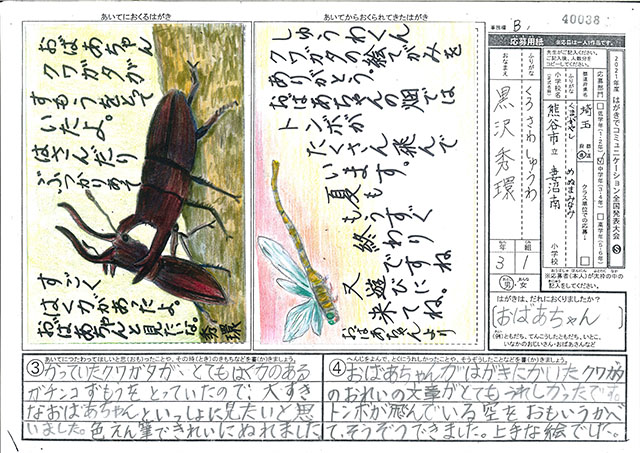 あいてにおくるはがき
おばあちゃん
クワガタが
すもうをとって
いたよ。
はさんだり
ぶつかりあって
すごく
はく力があったよ。
おばあちゃんと見たいな。秀環
あいてからおくられてきたはがき
しゅうわくん
クワガタの絵がみを
ありがとう。
おばあちゃんの畑では
トンボが
たくさん飛んで
います。
夏もすぐ
終りですね
又遊びに
来てね。
おばあちゃんより
事務欄 B,
40038
応募用紙
※応募は一人1作品です。
2021年度 はがきでコミュニケーション全国発表大会
応募部門
低学年(1・2年)
中学年(3・4年)
高学年(5・6年)
都道府県名
埼玉
クラス単位での応募
ふりがな
くまがやし
めぬまみなみ
小学校名
熊谷市立 妻沼南 小学校
ふりがな
くろさわしゅうわ
おなまえ
黒沢秀環
3年
1組
男・女
※応募者(本人)が太枠の中の
記入をしてください。
はがきは、だれにおくりましたか?
(おばあちゃん)
(例)ともだち、てんこうしたともだち、いとこ、
いなかのおじいさん・おばあさんなど
③ あいてにつたわってほしいと思(おも)ったことや、その時(とき)のきもちなどを書(か)きましょう。
かっていたクワガタが、とてもはく力のある
ガチンコずもうをとっていたので、大すき
なおばあちゃんといっしょに見たいと思
いました。色えん筆できれいにぬれました。
④ へんじをよんで、とくにうれしかったことや、そうぞうしたことなどを書(か)きましょう。
おばあちゃんがはがきにかいたクワガタ
のおれいの文章がとてもうれしかったです。
トンボが飛んでいる空をおもいうかべ
て、そうぞうできました。上手な絵でした。